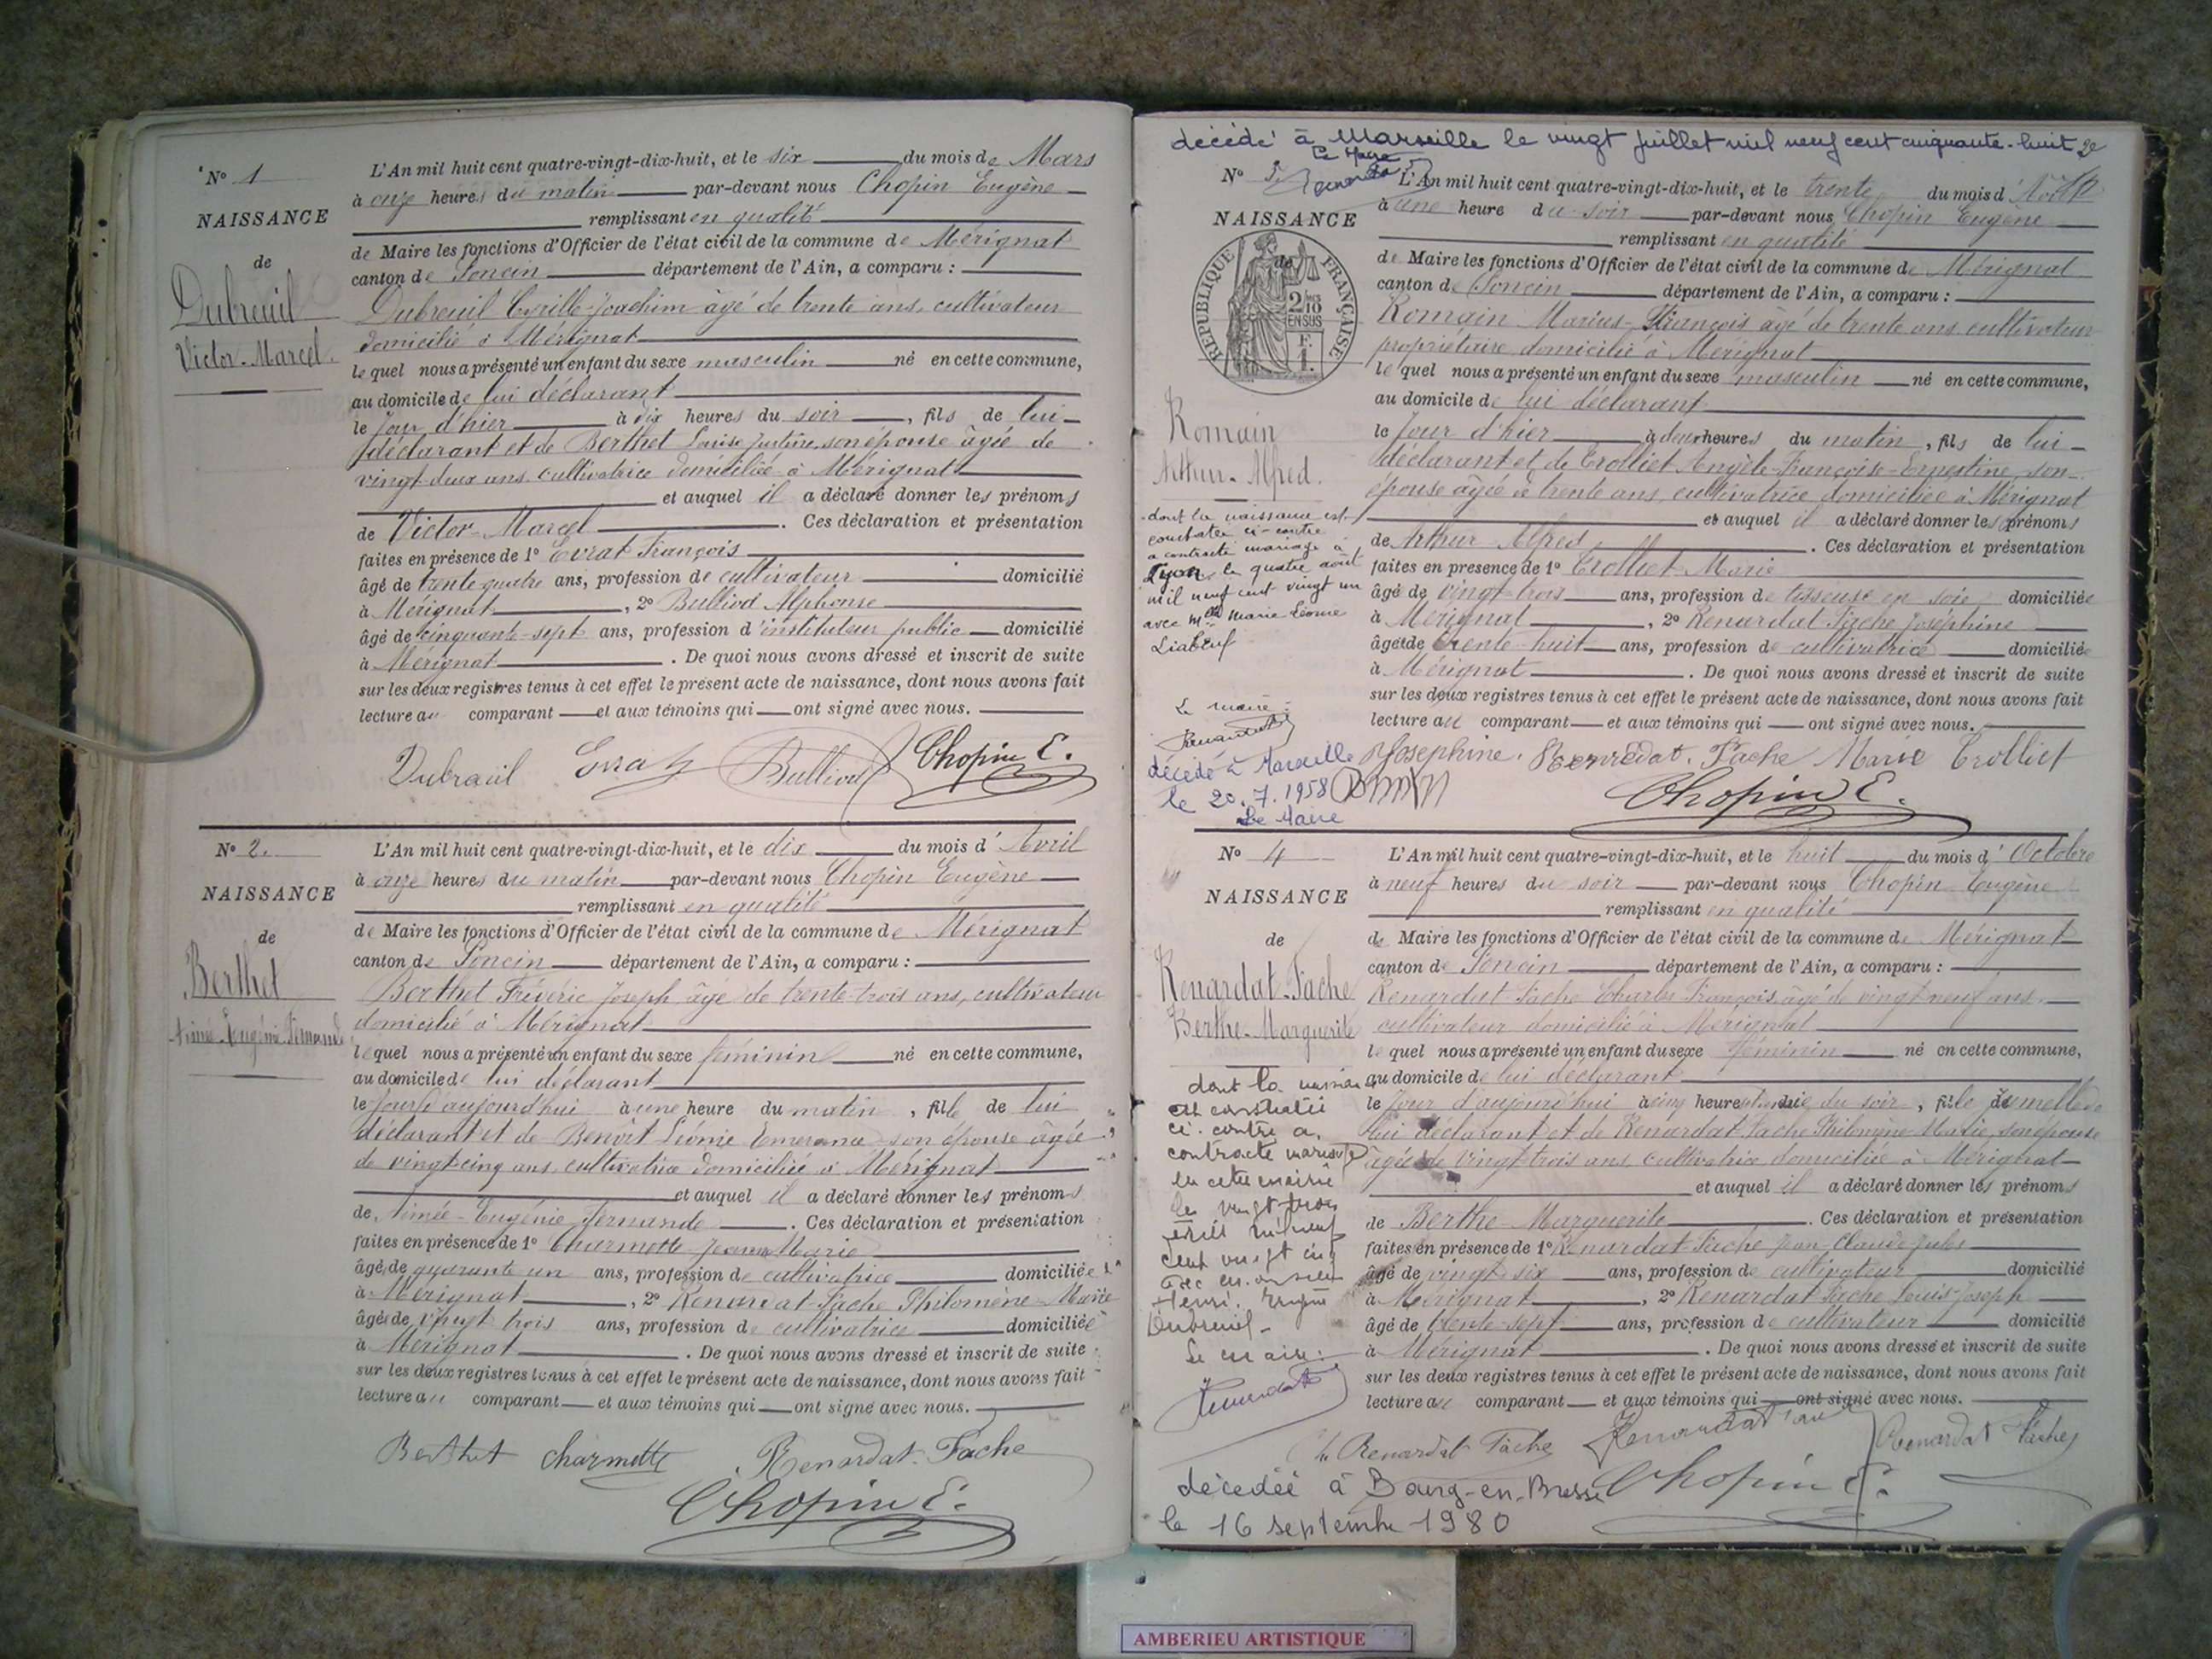 N° 1
NAISSANCE
de
Dubreuil
Victor-Marcel.
L'An mil huit cent quatre-vingt-dix-huit, et le six du mois de Mars
à onze heures du matin par-devant nous Chopin Eugène
remplissant en qualité
de Maire les fonctions d'Officier de l'état civil de la commune de Mérignat
canton de Poncin département de l'Ain, a comparu :
Dubreuil Cyrille-Joachim âgé de trente ans, cultivateur
domicilié à Mérignat
lequel nous a présenté un enfant du sexe masculin né en cette commune,
au domicile de lui déclarant
le jour d'hier à dix heures du soir, fils de lui
déclarant et de Berthet Louise Justine, son épouse âgée de
vingt-deux ans, cultivatrice domiciliée à Mérignat
et auquel il a déclaré donner les prénoms
de Victor-Marcel. Ces déclaration et présentation
faites en présence de 1° Evrat François
âgé de trente-quatre ans, profession de cultivateur domicilié
à Mérignat, 2° Bulliod Alphonse
âgé de cinquante-sept ans, profession d'instituteur public domicilié
à Mérignat. De quoi nous avons dressé et inscrit de suite
sur les deux registres tenus à cet effet le présent acte de naissance, dont nous avons fait
lecture au comparant et aux témoins qui ont signé avec nous.
Dubreuil Evrat Bulliod Chopin E.
N° 2.
NAISSANCE
de
Berthet
Aimée-Eugénie Fernande
L'An mil huit cent quatre-vingt-dix-huit, et le dix du mois d'Avril
à onze heures du matin par-devant nous Chopin Eugène
remplissant en qualité
de Maire les fonctions d'Officier de l'état civil de la commune de Mérignat
canton de Poncin département de l'Ain, a comparu :
Berthet Frédéric Joseph âgé de trente-trois ans, cultivateur
domicilié à Mérignat
lequel nous a présenté un enfant du sexe féminin né en cette commune,
au domicile de lui déclarant
le jour d'aujourd'hui à une heure du matin, fille de lui
déclarant et de Benoit Léonie Emerance son épouse âgée
de vingt-cinq ans, cultivatrice domiciliée à Mérignat
et auquel il a déclaré donner les prénoms
de Aimée-Eugénie Fernande. Ces déclaration et présentation
faites en présence de 1° Charmette Jeanne Marie
âgée de quarante un ans, profession de cultivatrice domiciliée
à Mérignat, 2° Renardat-Fache Philomène-Marie
âgée de vingt trois ans, profession de cultivatrice domiciliée
à Mérignat. De quoi nous avons dressé et inscrit de suite
sur les deux registres tenus à cet effet le présent acte de naissance, dont nous avons fait
lecture au comparant et aux témoins qui ont signé avec nous.
Berthet Charmette Renardat-Fache
Chopin E.
décédé à Marseille le vingt juillet mil neuf cent cinquante-huit
Le Maire
N° 3.
NAISSANCE
de
RÉPUBLIQUE FRANÇAISE
2/10 EN SUS
F. 1.
Romain
Arthur-Alfred.
dont la naissance est
constatée ci-contre
a contracté mariage à
Lyon, le quatre août
mil neuf cent vingt un
avec Mlle Marie Léonie
Liabeuf
Le maire
décédé à Marseille
le 20.7.1958
Le Maire
L'An mil huit cent quatre-vingt-dix-huit, et le trente du mois d'Août
à une heure du soir par-devant nous Chopin Eugène
remplissant en qualité
de Maire les fonctions d'Officier de l'état civil de la commune de Mérignat
canton de Poncin département de l'Ain, a comparu :
Romain Marius-François âgé de trente ans, cultivateur
propriétaire domicilié à Mérignat
lequel nous a présenté un enfant du sexe masculin né en cette commune,
au domicile de lui déclarant
le jour d'hier à deux heures du matin, fils de lui
déclarant et de Trolliet Angèle-Françoise-Ernestine, son
épouse âgée de trente ans, cultivatrice domiciliée à Mérignat
et auquel il a déclaré donner les prénoms
de Arthur Alfred. Ces déclaration et présentation
faites en présence de 1° Trolliet Marie
âgé de vingt-trois ans, profession de tisseuse en soie domiciliée
à Mérignat, 2° Renardat-Fache Joséphine
âgée de trente huit ans, profession de cultivatrice domiciliée
à Mérignat. De quoi nous avons dressé et inscrit de suite
sur les deux registres tenus à cet effet le présent acte de naissance, dont nous avons fait
lecture au comparant et aux témoins qui ont signé avec nous.
Josephine. Renardat. Fache Marie Trolliet
Chopin E.
N° 4
NAISSANCE
de
Renardat-Fache
Berthe-Marguerite
dont la naissance
est constatée
ci-contre a
contracté mariage
en cette mairie
le vingt-trois
avril mil neuf
cent vingt cinq
avec
Henri
Dubreuil
Le maire:
L'An mil huit cent quatre-vingt-dix-huit, et le huit du mois d'Octobre
à neuf heures du soir par-devant nous Chopin Eugène
remplissant en qualité
de Maire les fonctions d'Officier de l'état civil de la commune de Mérignat
canton de Poncin département de l'Ain, a comparu :
Renardat Fache Charles François, âgé de vingt neuf ans.
cultivateur domicilié à Mérignat
lequel nous a présenté un enfant du sexe féminin né en cette commune,
au domicile de lui déclarant
le jour d'aujourd'hui à cinq heures du soir, fille jumelle de
lui déclarant et de Renardat Fache Philomène Marie, son épouse
âgée de vingt-trois ans, cultivatrice domiciliée à Mérignat
et auquel il a déclaré donner les prénoms
de Berthe-Marguerite. Ces déclaration et présentation
faites en présence de 1° Renardat-Fache Jean-Claude Jules
âgé de vingt-six ans, profession de cultivateur domicilié
à Mérignat, 2° Renardat Fache Louis-Joseph
âgé de trente-sept ans, profession de cultivateur domicilié
à Mérignat. De quoi nous avons dressé et inscrit de suite
sur les deux registres tenus à cet effet le présent acte de naissance, dont nous avons fait
lecture au comparant et aux témoins qui ont signé avec nous.
Ch Renardat Fache Renardat Fache
Chopin E.
décédée à Bourg-en-Bresse
le 16 septembre 1980
AMBERIEU ARTISTIQUE